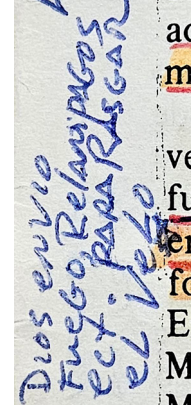 Dios envio
Fuego, Relampagos
ect. PARA RASGAR
el velo
ad
m
ve
fu
en
fo
E
M